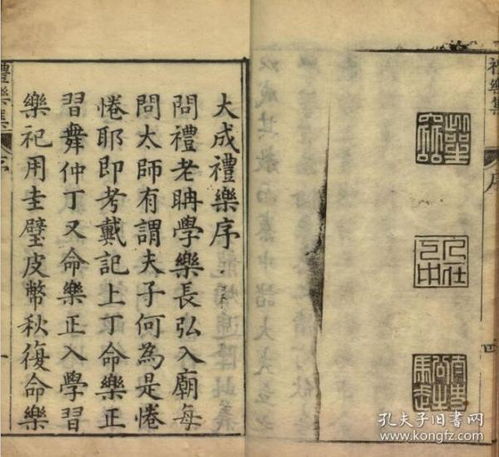 大成禮樂序
問禮老聃學樂長弘入廟每
問太師有謂夫子何為是惓
惓耶即考戴記上丁命樂正
習舞仲丁又命樂正入學習
樂祀用圭璧皮幣秋復命樂
禮樂集
序
一
禮樂集
序
四
孔夫子旧书网
www.kongfz.com